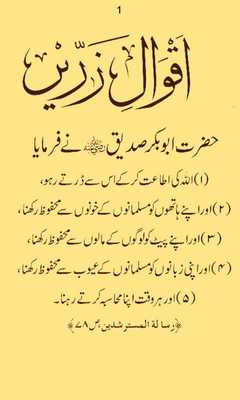 1
اَقْوالِ زَرِّیں
حضرت ابوبکر صدیق رضی اللہ عنہ نے فرمایا
(۱) اللہ کی اطاعت کر کے اس سے ڈرتے رہو،
(۲) اور اپنے ہاتھوں کو مسلمانوں کے خونوں سے محفوظ رکھنا،
(۳) اور اپنے پیٹ کو لوگوں کے مالوں سے محفوظ رکھنا،
(۴) اور اپنی زبانوں کو مسلمانوں کے عیوب سے محفوظ رکھنا،
(۵) اور ہر وقت اپنا محاسبہ کرتے رہنا۔
﴿رسالة المسترشدین، ص ۷۸﴾